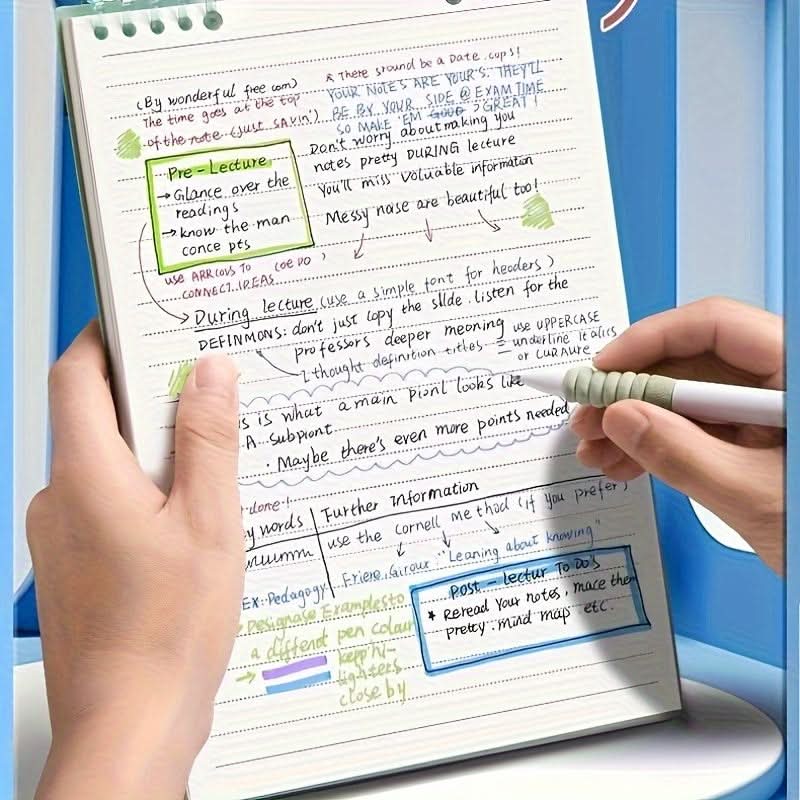 (By wonderful free com)
The time goes at the top
of the note (just sayin')
& There sround be a Date .cups!
YOUR NOTES ARE YOUR'S. THEY'LL
BE BY YOUR SIDE @ EXAM TIME
SO MAKE 'EM GOOD GREAT!
Pre - Lecture
→ Glance over the
readings
→ know the man
conce pts
Don't worry about making you
notes pretty DURING lecture
You'll miss valuable information
Messy noise are beautiful too!
USE ARROWS TO (OE DO )
CONNECT.IDEAS
During lecture (use a simple font for hoders)
DEFINMONS: don't just lopy the slide. listen for the
professors deeper meoning
I thought definition titles
use UPPERCASE
underline italics
or CURAURE
is is what a main pionl looks like
A. Subpiont
. Maybe there's even more points needed
done!
y words
Further information
use the Cornell Me thod (if you prefer)
Friere, Giroux: "Leaning about knowing"
EX: Pedagogy
Designase Examplesto
a differt pen colour
kepp hi-
lighters
close by
POST - lectur To Do's
* Reread Your notes, mace them
pretty .mind map etc.